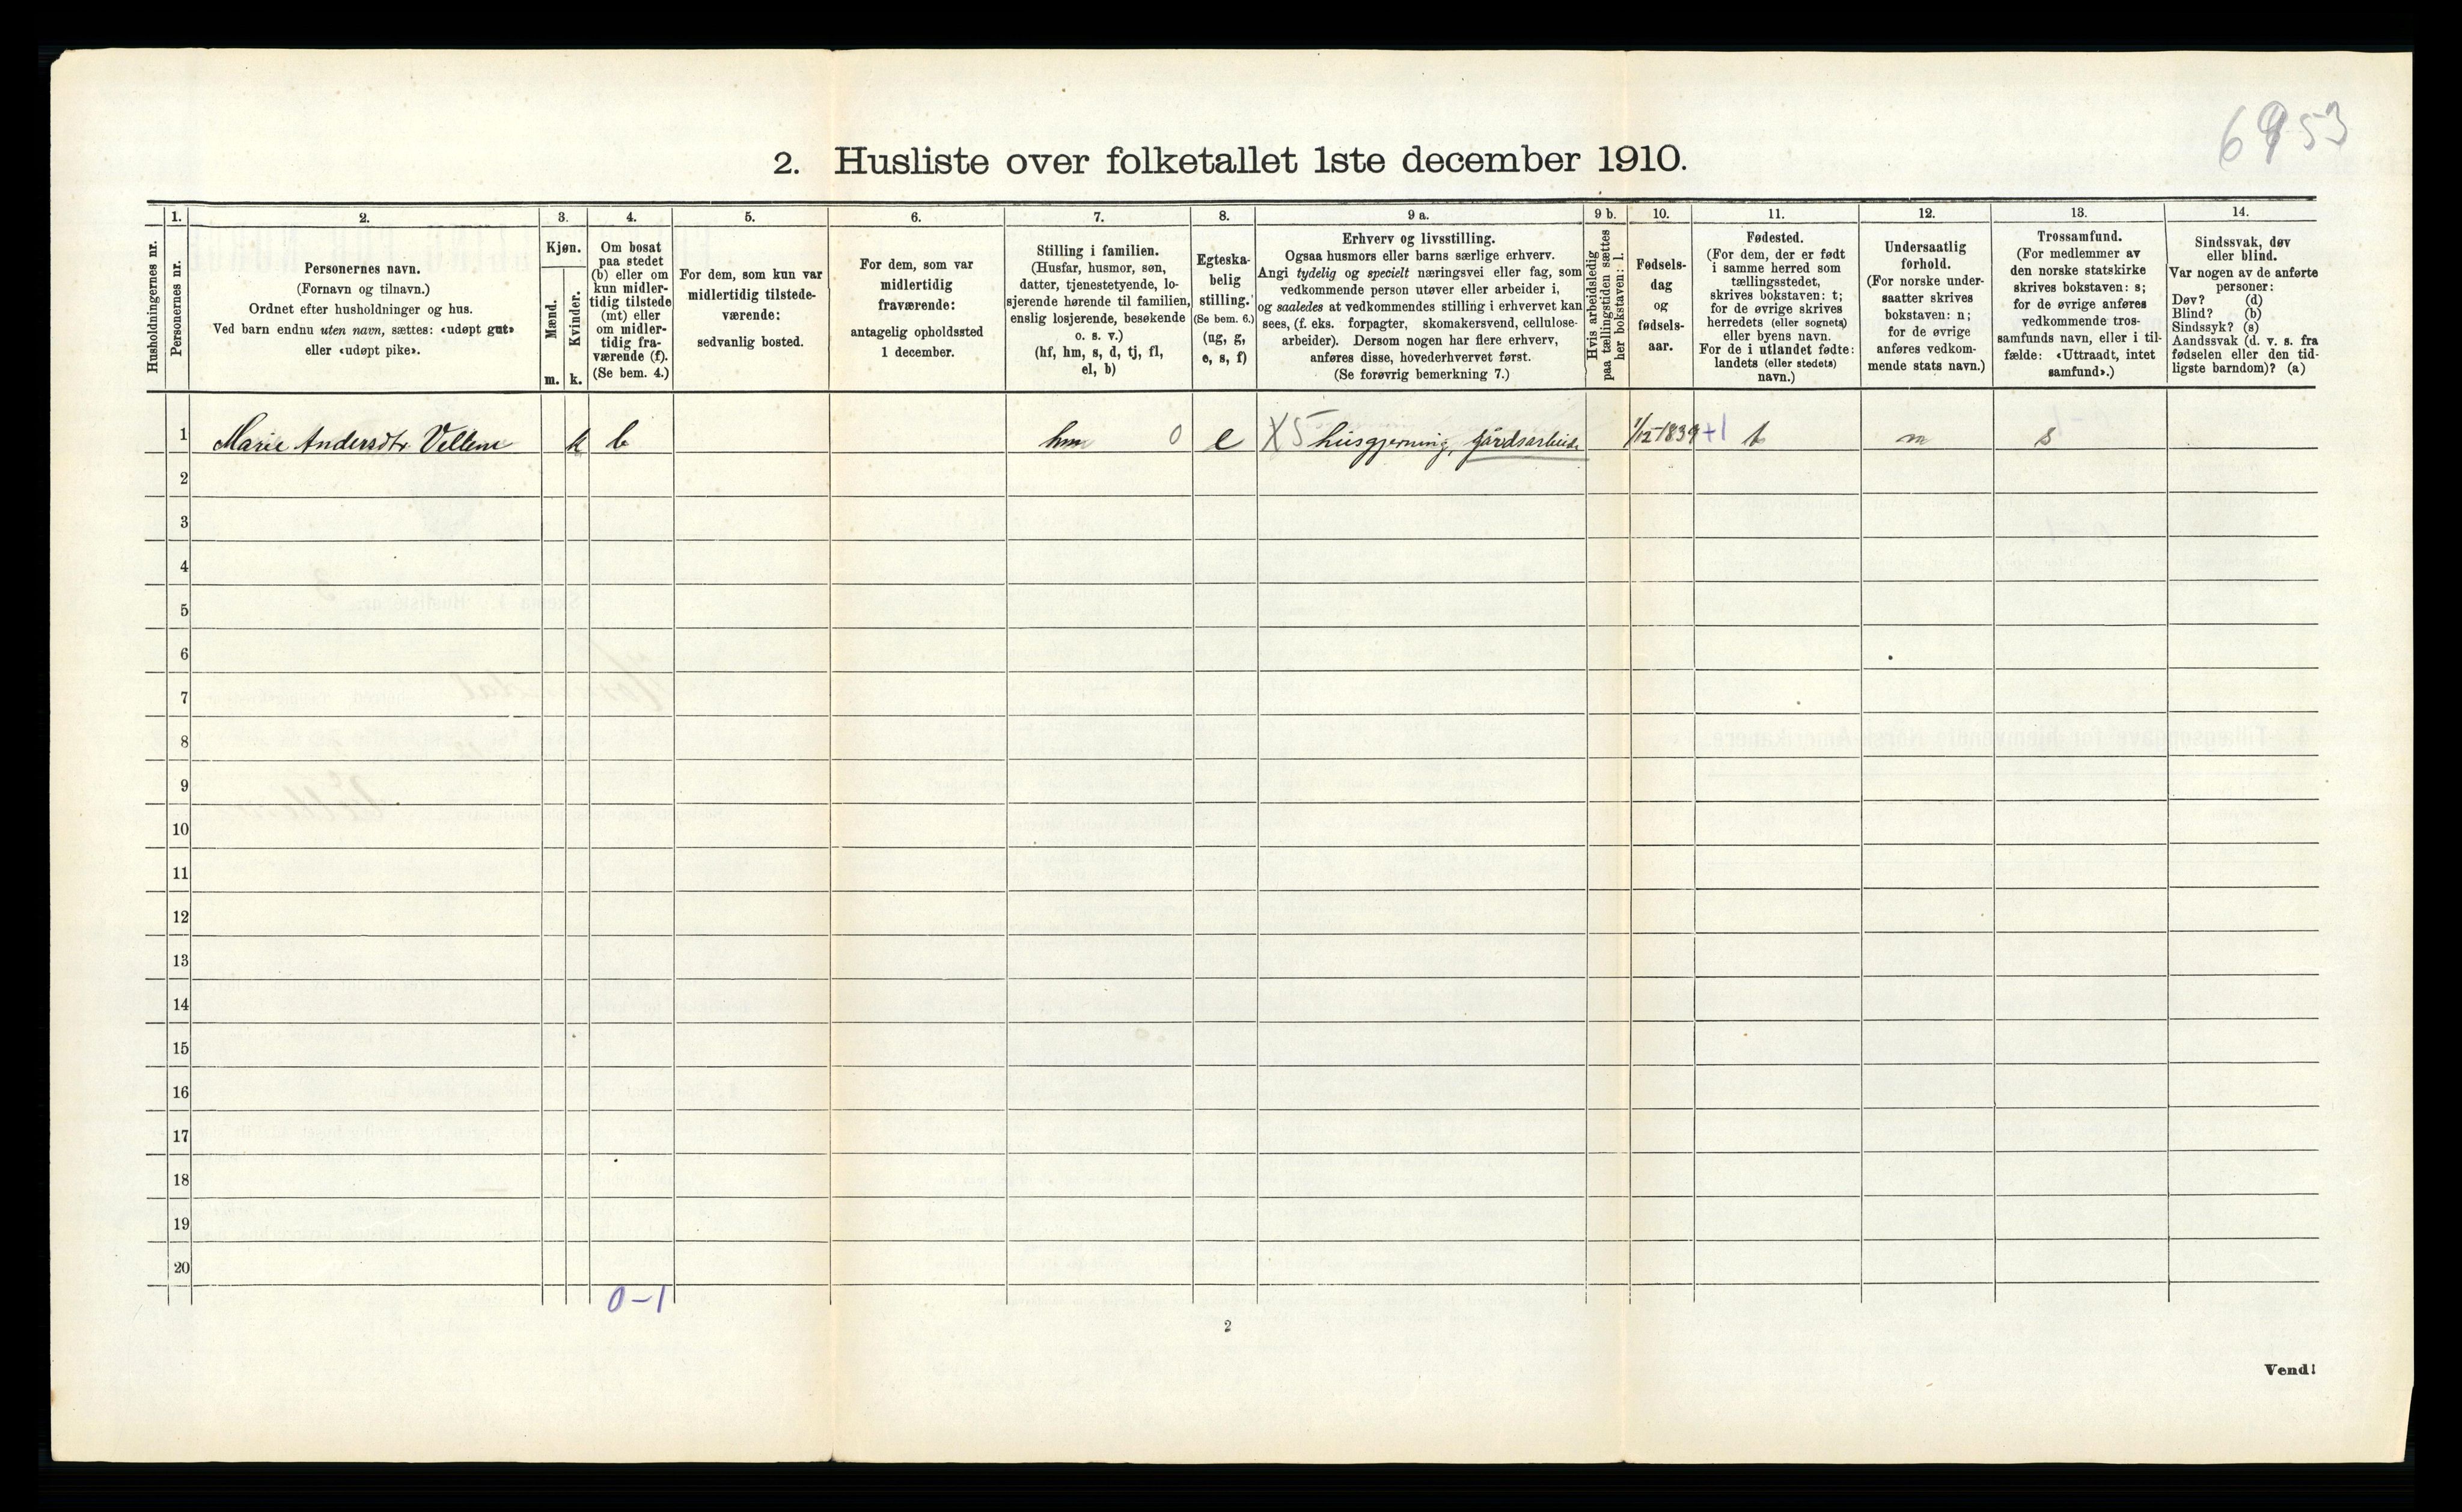 6953
2. Husliste over folketallet 1ste december 1910.
Husholdningernes nr.
1.
Personernes nr.
2.
Personernes navn.
(Fornavn og tilnavn.)
Ordnet efter husholdninger og hus.
Ved barn endnu uten navn, sættes: «udøpt gut»
eller «udøpt pike».
3.
Kjøn.
Mænd.
Kvinder.
m. k.
4.
Om bosat
paa stedet
(b) eller om
kun midler-
tidig tilstede
(mt) eller
om midler-
tidig fra-
værende (f).
(Se bem. 4.)
5.
For dem, som kun var
midlertidig tilstede-
værende:
sedvanlig bosted.
6.
For dem, som var
midlertidig
fraværende:
antagelig opholdssted
1 december.
7.
Stilling i familien.
(Husfar, husmor, søn,
datter, tjenestetyende, lo-
sjerende hørende til familien,
enslig losjerende, besøkende
o. s. v.)
(hf, hm, s, d, tj, fl,
el, b)
8.
Egteska-
belig
stilling.
(Se bem. 6.)
(ug, g,
e, s, f)
9 a.
Erhverv og livsstilling.
Ogsaa husmors eller barns særlige erhverv.
Angi tydelig og specielt næringsvei eller fag, som
vedkommende person utøver eller arbeider i,
og saaledes at vedkommendes stilling i erhvervet kan
sees, (f. eks. forpagter, skomakersvend, cellulose-
arbeider). Dersom nogen har flere erhverv,
anføres disse, hovederhvervet først.
(Se forøvrig bemerkning 7.)
9 b.
Hvis arbeidsledig
paa tællingstiden sættes
her bokstaven: l.
10.
Fødsels-
dag
og
fødsels-
aar.
11.
Fødested.
(For dem, der er født
i samme herred som
tællingsstedet,
skrives bokstaven: t;
for de øvrige skrives
herredets (eller sognets)
eller byens navn.
For de i utlandet fødte:
landets (eller stedets)
navn.)
12.
Undersaatlig
forhold.
(For norske under-
saatter skrives
bokstaven: n;
for de øvrige
anføres vedkom-
mende stats navn.)
13.
Trossamfund.
(For medlemmer av
den norske statskirke
skrives bokstaven: s;
for de øvrige anføres
vedkommende tros-
samfunds navn, eller i til-
fælde: «Uttraadt, intet
samfund».)
14.
Sindssvak, døv
eller blind.
Var nogen av de anførte
personer:
Døv? (d)
Blind? (b)
Sindssyk? (s)
Aandssvak (d. v. s. fra
fødselen eller den tid-
ligste barndom)? (a)
1 Marie Andersdtr. Vellene k b hm 0 e X5 husgjerning, gårdsarbeide 1/12-1839 +1 t n s
2
3
4
5
6
7
8
9
10
11
12
13
14
15
16
17
18
19
20
0-1
2
Vend!